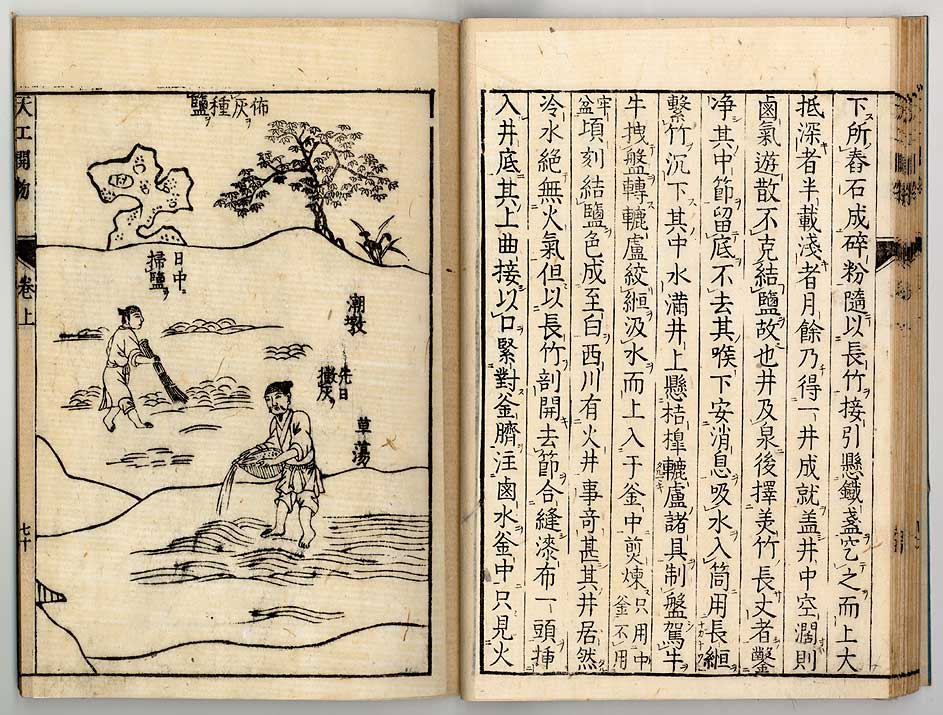 下所舂石成碎粉隨以長竹接引懸鐵盞空之而上大
抵深者半載淺者月餘乃得一井成就盖井中空濶則
鹵氣遊散不克結鹽故也井及泉後擇美竹長丈者鑿
净其中節留底不去其喉下安消息吸水入筒用長緪
繫竹沉下其中水滿井上懸桔槹轆盧諸具制盤駕牛
牛拽盤轉轆盧絞緪汲水而上入于釜中煎煉只用中釜不用
牢盆頃刻結鹽色成至白西川有火井事奇甚其井居然
冷水絕無火氣但以長竹剖開去節合縫漆布一頭揷
入井底其上曲接以口緊對釜臍注鹵水釜中只見火
佈灰種鹽
潮墩
先日撒灰
草蕩
日中掃鹽
天工開物
卷上
七十